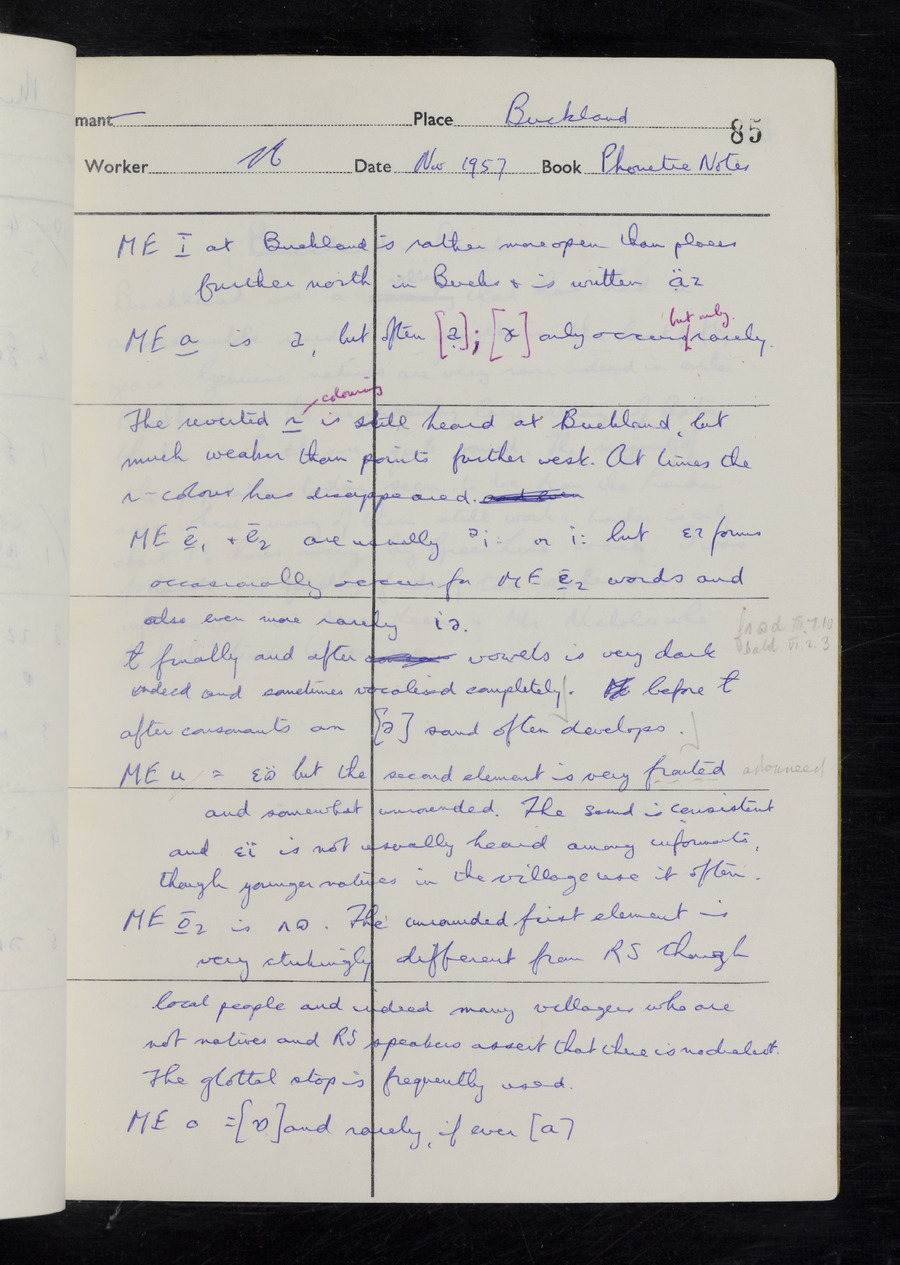 mant Place Buckland 85
Worker N Date Nov 1957 Book Phonetic Notes
ME ī at Buckland is rather more open than places
further north in Bucks & is written äɪ
ME a is a, but often [a̤]; [ɤ] only occurs but only rarely.
The reverted r colouring is still heard at Buckland, but
much weaker than points further west. At times the
r-colour has disappeared.
ME ē₁ + ē₂ are usually ᵊi: or i: but ɛɪ forms
occasionally occurs for ME ē₂ words and
also even more rarely iə.
ɫ finally and after vowels is very dark
road VII.7.10
bald VI.2.3
indeed and sometimes vocalised completely. before ɫ
after consonants an [ə] sound often develops.
ME u = ɛö but the second element is very fronted advanced
and somewhat unrounded. The sound is consistent
and ɛï is not usually heard among informants,
though younger natives in the village use it often.
ME ō₂ is ʌɷ. The unrounded first element is
very strikingly different from RS though
local people and indeed many villagers who are
not natives and RS speakers assert that there is no dialect.
The glottal stop is frequently used.
ME o = [ɒ] and rarely, if ever [ɑ]